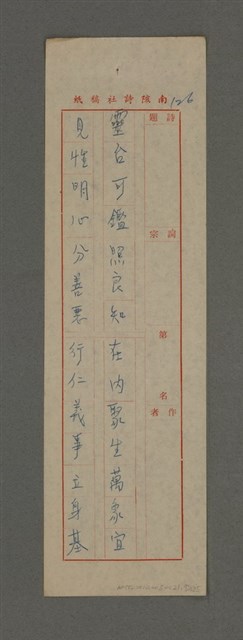 南陔詩社稿紙
126
詩題
詞宗
第 名
作者
靈台可鑑照良知 在內聚生萬象宜
見性明心分善惡 行仁義事立身基